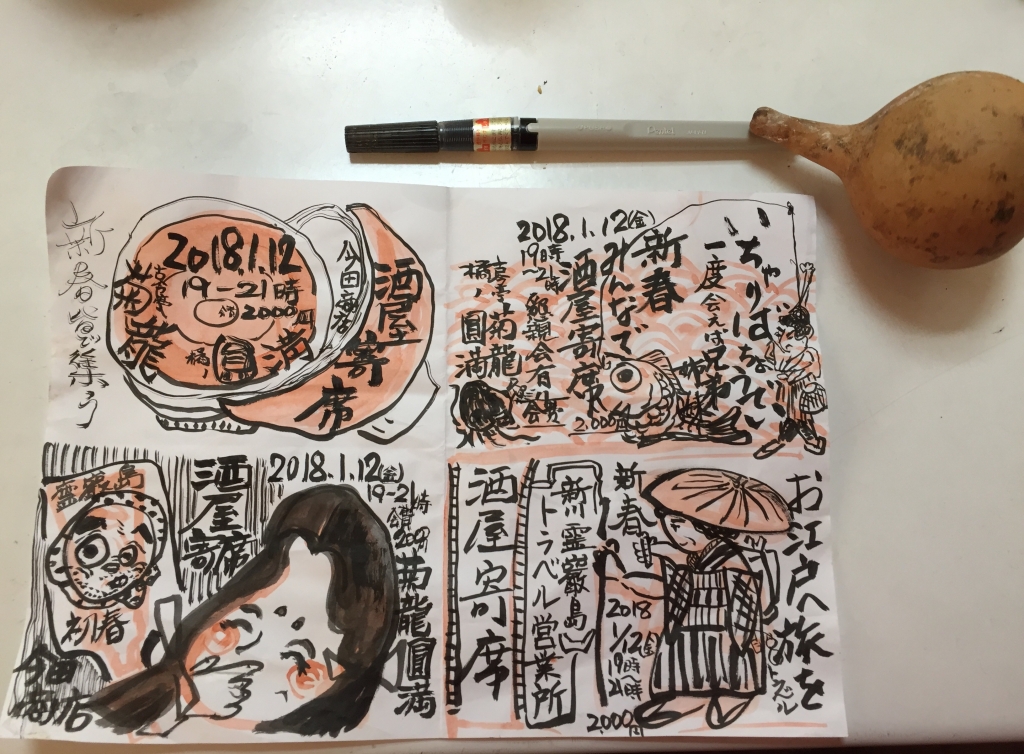 新春皆で集う
2018.1.12
19-21時
2000円
古今亭
菊龍
橘ノ
圓満
今田商店
酒屋
寄席
いちゃりばちょーでー
一度会えば兄弟
姉妹
新春
みんなで
酒屋寄席
2018.1.12(金)
19時
~21時
2.000円
古今亭菊龍
橘ノ圓満
霊巌島
初春
今田
商店
酒屋
寄席
2018.1.12(金)
19-21時
菊龍圓満
お江戸へ旅を
新春
2018
1/12(金)
19時~
21時
2000円
新川霊巌島
トラベル営業所
酒屋寄席
Pentel